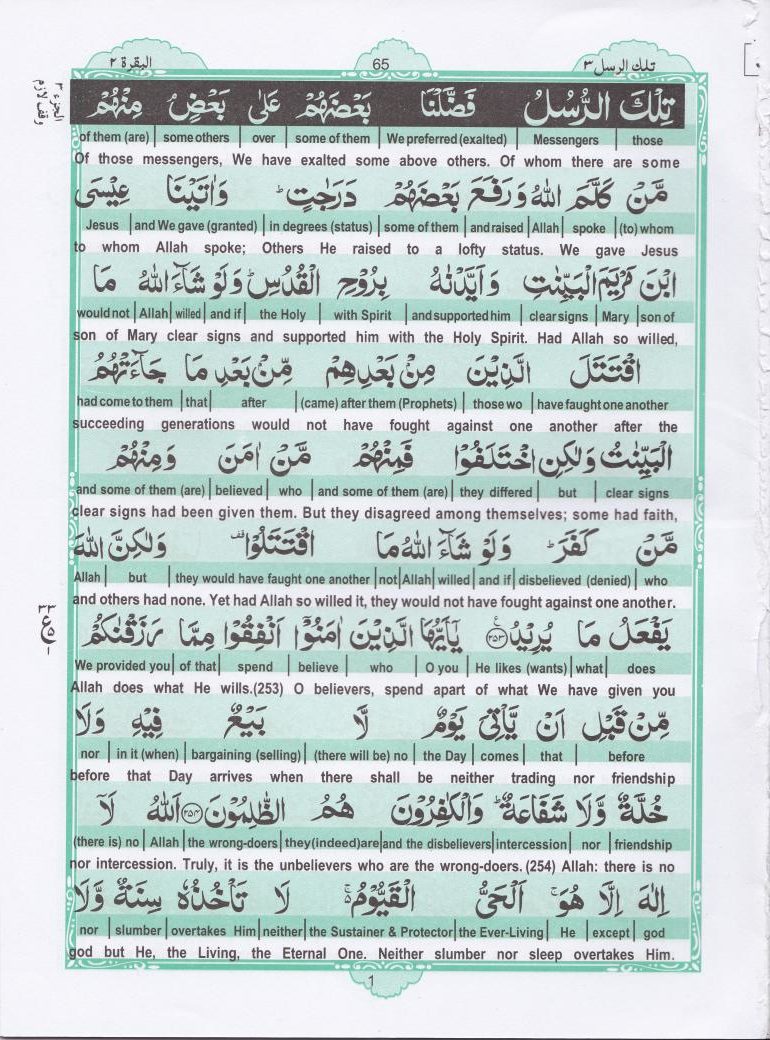 البقرة ٢
65
تلك الرسل ٣
الجزء ٣
وقف لازم
تِلْكَ الرُّسُلُ فَضَّلْنَا بَعْضَهُمْ عَلٰى بَعْضٍ مِنْهُمْ
of them (are) | some others | over | some of them | We preferred (exalted) | Messengers | those
Of those messengers, We have exalted some above others. Of whom there are some
مَّنْ كَلَّمَ اللّٰهُ وَرَفَعَ بَعْضَهُمْ دَرَجٰتٍ ؕ وَاٰتَيْنَا عِيْسَى
Jesus | and We gave (granted) | in degrees (status) | some of them | and raised | Allah | spoke | (to) whom
to whom Allah spoke; Others He raised to a lofty status. We gave Jesus
ابْنَ مَرْيَمَ الْبَيِّنٰتِ وَاَيَّدْنٰهُ بِرُوْحِ الْقُدُسِ ؕ وَلَوْ شَآءَ اللّٰهُ مَا
would not | Allah | willed | and if | the Holy | with Spirit | and supported him | clear signs | Mary | son of
son of Mary clear signs and supported him with the Holy Spirit. Had Allah so willed,
اقْتَتَلَ الَّذِيْنَ مِنْۢ بَعْدِهِمْ مِّنْۢ بَعْدِ مَا جَآءَتْهُمُ
had come to them | that | after | (came) after them (Prophets) | those wo | have faught one another
succeeding generations would not have fought against one another after the
الْبَيِّنٰتُ وَلٰكِنِ اخْتَلَفُوْا فَمِنْهُمْ مَّنْ اٰمَنَ وَمِنْهُمْ
and some of them (are) | believed | who | and some of them (are) | they differed | but | clear signs
clear signs had been given them. But they disagreed among themselves; some had faith,
مَّنْ كَفَرَ ؕ وَلَوْ شَآءَ اللّٰهُ مَا اقْتَتَلُوْا ۫ وَلٰكِنَّ اللّٰهَ
Allah | but | they would have faught one another | not | Allah | willed | and if | disbelieved (denied) | who
and others had none. Yet had Allah so willed it, they would not have fought against one another.
يَفْعَلُ مَا يُرِيْدُ ﴿۲۵۳﴾ يٰۤاَيُّهَا الَّذِيْنَ اٰمَنُوْۤا اَنْفِقُوْا مِمَّا رَزَقْنٰكُمْ
We provided you | of that | spend | believe | who | O you | He likes (wants) | what | does
Allah does what He wills.(253) O believers, spend apart of what We have given you
مِّنْ قَبْلِ اَنْ يَّاْتِيَ يَوْمٌ لَّا بَيْعٌ فِيْهِ وَلَا
nor | in it (when) | bargaining (selling) | (there will be) no | the Day | comes | that | before
before that Day arrives when there shall be neither trading nor friendship
خُلَّةٌ وَّلَا شَفَاعَةٌ ؕ وَالْكٰفِرُوْنَ هُمُ الظّٰلِمُوْنَ ﴿۲۵۴﴾ اَللّٰهُ لَاۤ
(there is) no | Allah | the wrong-doers | they(indeed)are | and the disbelievers | intercession | nor | friendship
nor intercession. Truly, it is the unbelievers who are the wrong-doers. (254) Allah: there is no
اِلٰهَ اِلَّا هُوَ ۚ اَلْحَيُّ الْقَيُّوْمُ ۚ لَا تَاْخُذُهٗ سِنَةٌ وَّلَا
nor | slumber | overtakes Him | neither | the Sustainer & Protector | the Ever-Living | He | except | god
god but He, the Living, the Eternal One. Neither slumber nor sleep overtakes Him.
1